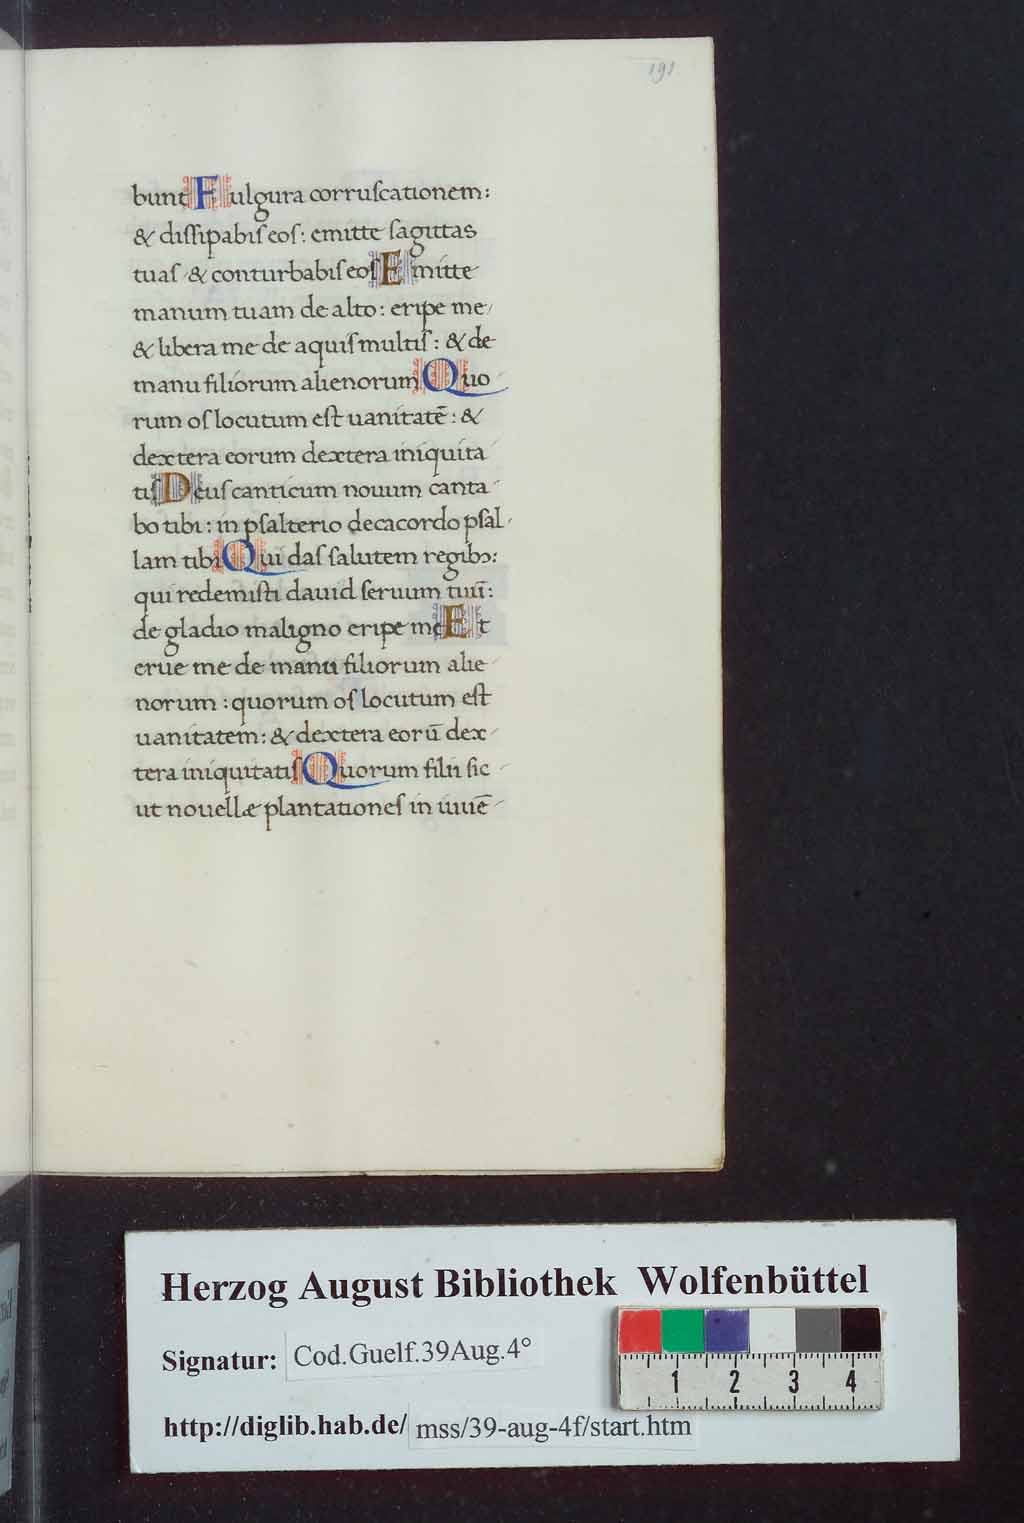 191
bunt Fulgura corruſcationem:
& diſſipabiſ eoſ: emitte ſagittas
tuaſ & conturbabiſ eoſ Emitte
manum tuam de alto: eripe me
& libera me de aquiſ multiſ: & de
manu filiorum alienorum Quo
rum oſ locutum eſt uanitatē: &
dextera eorum dextera iniquita
tiſ Deuſ canticum nouum canta
bo tibi: in pſalterio decacordo pſal
lam tibi Qui daſ ſalutem regibꝫ:
qui redemiſti dauid ſeruum tuū:
de gladio maligno eripe me Et
erue me de manu filiorum alie
norum: quorum oſ locutum eſt
uanitatem: & dextera eorū dex
tera iniquitatiſ Quorum filii ſic
ut nouellæ plantationeſ in iuuē
Herzog August Bibliothek Wolfenbüttel
Signatur: Cod.Guelf.39Aug.4°
1 2 3 4
http://diglib.hab.de/ mss/39-aug-4f/start.htm